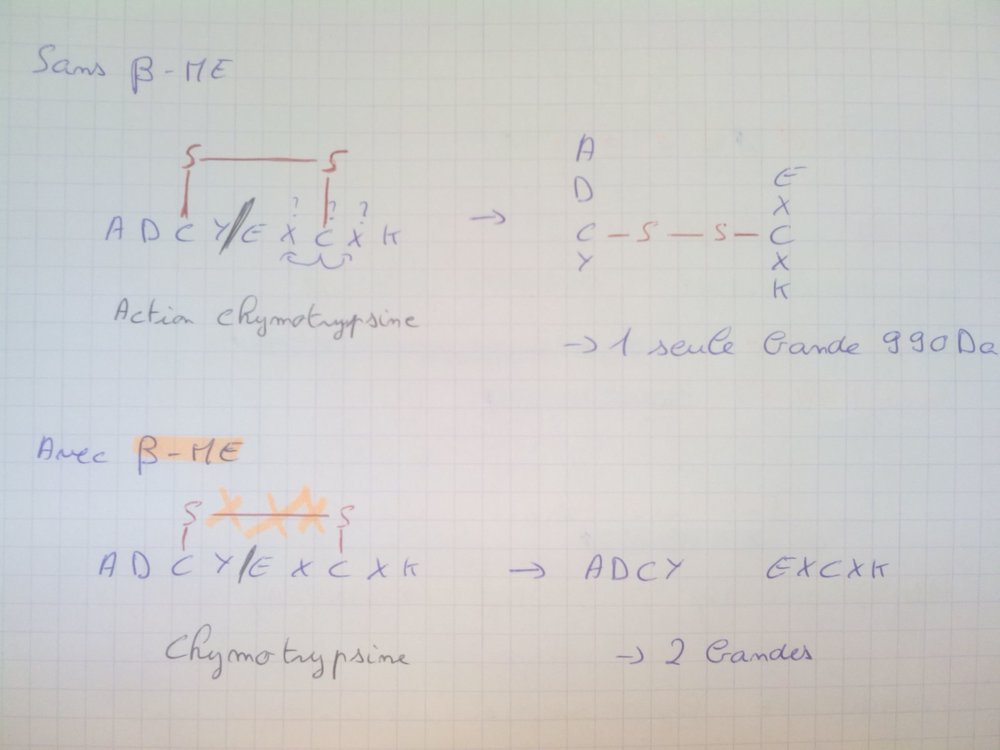 Sans β-ME
S S
? ? ?
A D C Y/E X C X K →
Action Chymotrypsine
A
D
C - S - S - C
Y
E
X
X
K
→ 1 seule bande 990Da
Avec β-ME
S XXX S
A D C Y/E X C X K → ADCY EXCXK
Chymotrypsine → 2 bandes